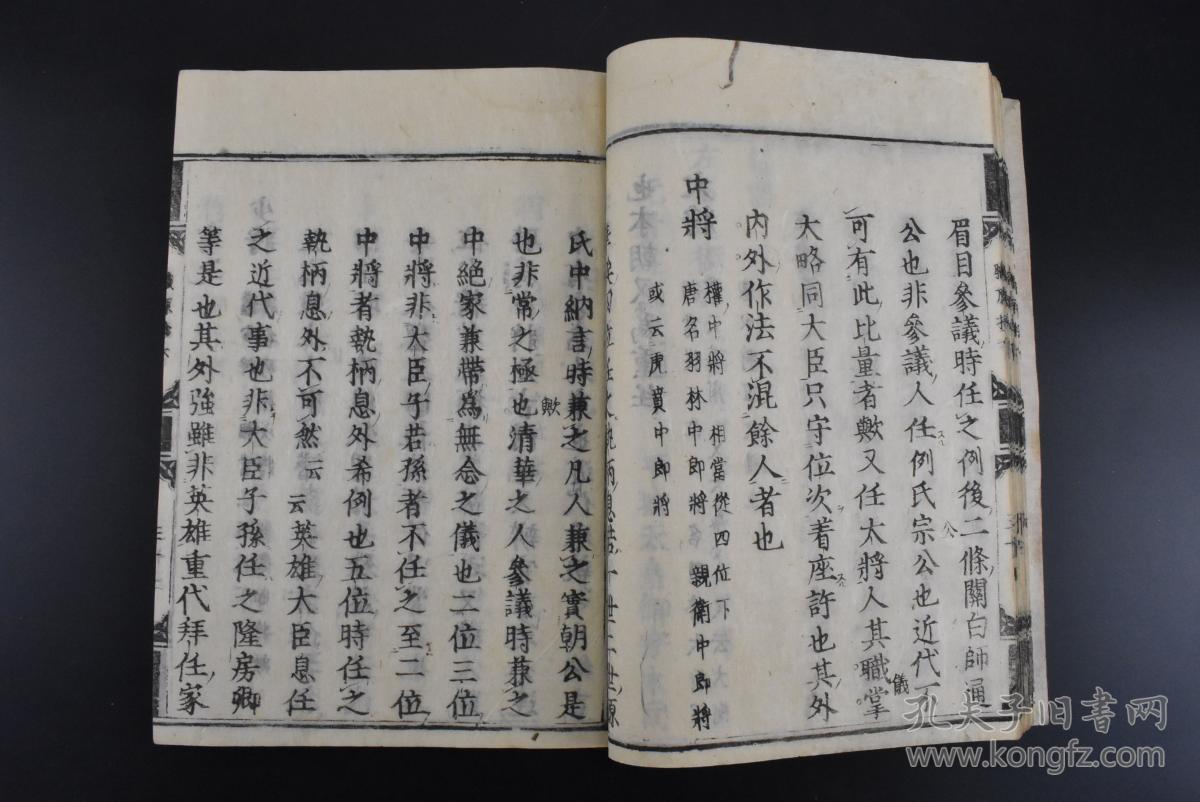 眉目參議時任之例後二條關白師通
公也非參議人任例氏宗公也近代不
可有此比量者歟又任大將人其職掌
大略同大臣只守位次着座許也其外
內外作法不混餘人者也
中將
權中將 相當從四位下
唐名羽林中郎將 親衛中郎將
或云虎賁中郎將
氏中納言時兼之凡人兼之實朝公是
也非常之極也清華之人參議時兼之
中絕家兼帶爲無念之儀也二位三位
中將非大臣子若孫者不任之至二位
中將者執柄息外希例也五位時任之
執柄息外不可然云云英雄大臣息任
之近代事也非大臣子孫任之隆房卿
等是也其外強雖非英雄重代拜任家
歟
儀
孔夫子旧书网
www.kongfz.com